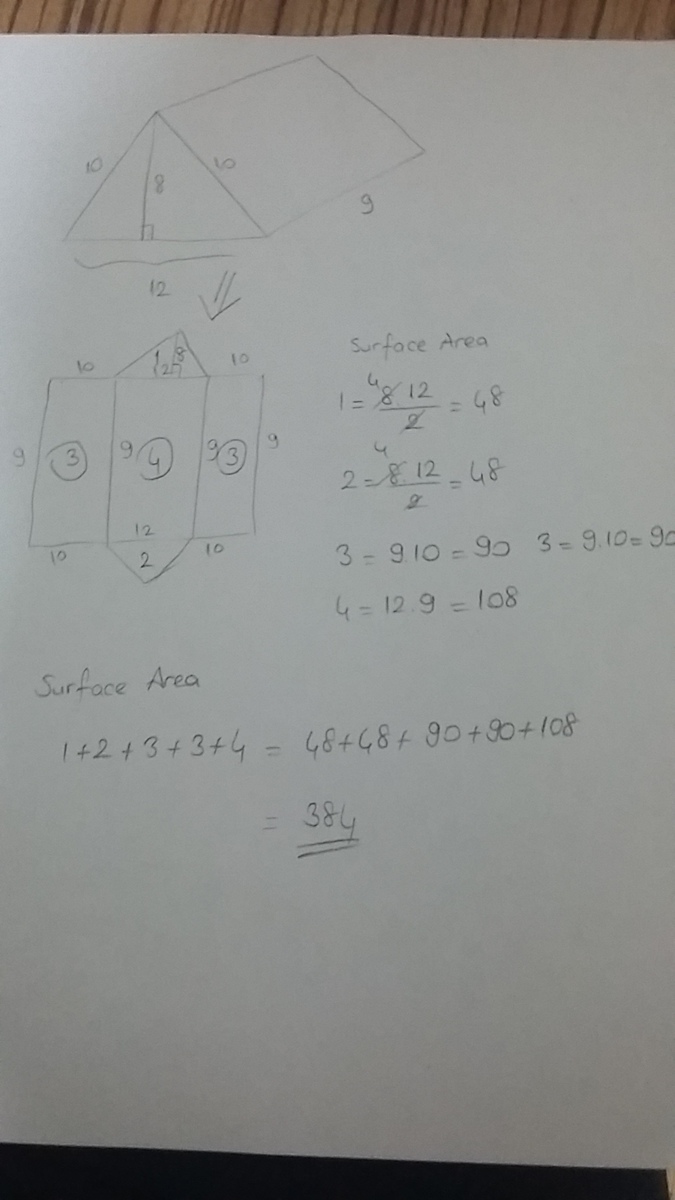 10
10
8
9
12
10
1
8
12
10
9
3
9
4
9
3
9
12
10
2
10
Surface Area
1 = 8.12/2 = 48
4
2 = 8.12/2 = 48
4
3 = 9.10 = 90 3 = 9.10 = 90
4 = 12.9 = 108
Surface Area
1+2+3+3+4 = 48+48+90+90+108
= 384